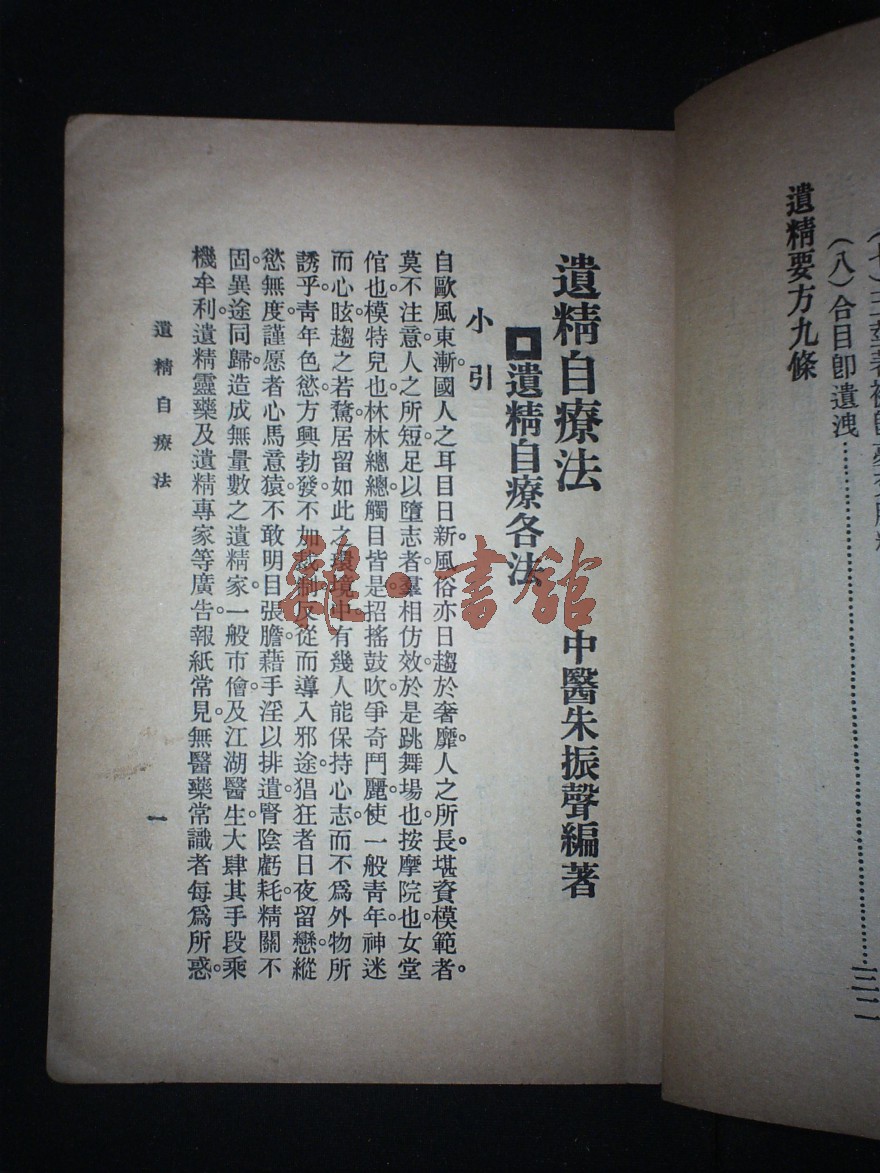 (八)合目卽遺洩……三二
遺精要方九條
遺精自療法　中醫朱振聲編著
遺精自療各法
小引
自歐風東漸。國人之耳目日新。風俗亦日趨於奢靡。人之所長。堪資模範者。
莫不注意。人之所短。足以墮志者。羣相仿效。於是跳舞場也。按摩院也。女堂
倌也。模特兒也。林林總總。觸目皆是。招搖鼓吹。爭奇鬥麗。使一般靑年。神迷
而心眩。趨之若鶩。居留如此之環境中。有幾人能保持心志。而不爲外物所
誘乎。靑年色慾方興。勃發不加裁制。反從而導入邪途。猖狂者日夜留戀。縱
慾無度。謹愿者心馬意猿。不敢明目張膽。藉手淫以排遣。腎陰虧耗。精關不
固。異途同歸。造成無量數之遺精家。一般市儈及江湖醫生。大肆其手段。乘
機牟利。遺精靈藥及遺精專家等廣告。報紙常見。無醫藥常識者。每爲所惑。
遺精自療法
一
雜·書館